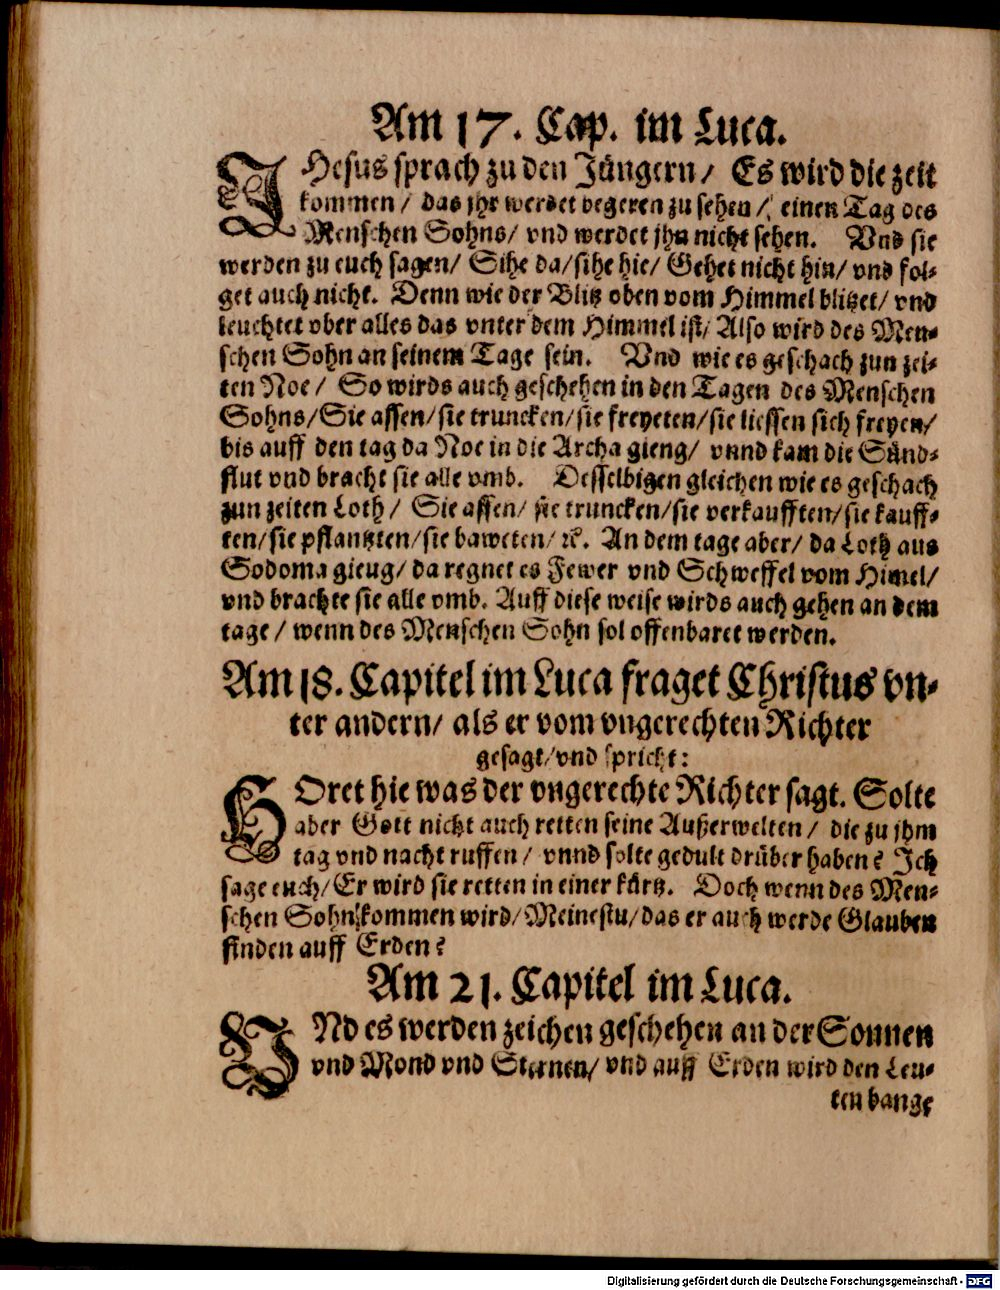 Am 17. Cap. im Luca.
JHesus sprach zu den Jüngern / Es wird die zeit
kommen / das jhr werdet begeren zu sehen / einen Tag des
Menschen Sohns / vnd werdet jhn nicht sehen. Vnd sie
werden zu euch sagen / Sihe da / sihe hie / Gehet nicht hin / vnd fol-
get auch nicht. Denn wie der Blitz oben vom Himmel blitzet / vnd
leuchtet vber alles das vnter dem Himmel ist / Also wird des Men-
schen Sohn an seinem Tage sein. Vnd wie es geschach zun zei-
ten Noe / So wirds auch geschehen in den Tagen des Menschen
Sohns / Sie assen / sie truncken / sie freyeten / sie liessen sich freyen /
bis auff den tag da Noe in die Archa gieng / vnnd kam die Sünd-
flut vnd bracht sie alle vmb. Desselbigen gleichen wie es geschach
zun zeiten Loth / Sie assen / sie truncken / sie verkaufften / sie kauff-
ten / sie pflantzten / sie baweten / ꝛc. An dem tage aber / da Loth aus
Sodoma gieng / da regnet es Fewer vnd Schweffel vom Himel /
vnd brachte sie alle vmb. Auff diese weise wirds auch gehen an dem
tage / wenn des Menschen Sohn sol offenbaret werden.
Am 18. Capitel im Luca fraget Christus vn-
ter andern / als er vom vngerechten Richter
gesagt / vnd spricht:
HOret hie was der vngerechte Richter sagt. Solte
aber Gott nicht auch retten seine Außerwelten / die zu jhm
tag vnd nacht ruffen / vnnd solte gedult drüber haben? Ich
sage euch / Er wird sie retten in einer kürtz. Doch wenn des Men-
schen Sohn kommen wird / Meinestu / das er auch werde Glauben
finden auff Erden?
Am 21. Capitel im Luca.
VNd es werden zeichen geschehen an der Sonnen
vnd Mond vnd Sternen / vnd auff Erden wird den Leu-
ten bange
Digitalisierung gefördert durch die Deutsche Forschungsgemeinschaft - DFG